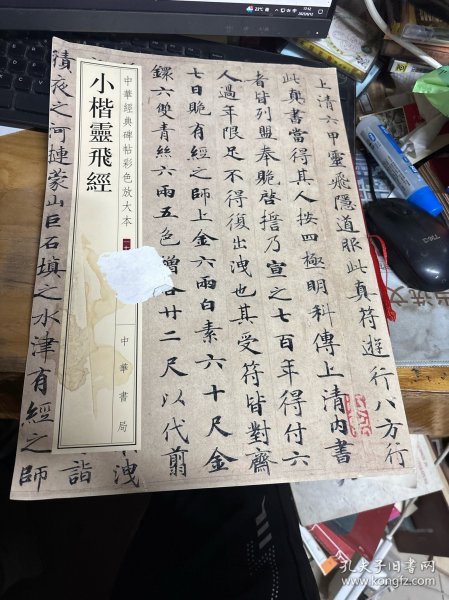 中華經典碑帖彩色放大本
小楷靈飛經
中華書局
上清六甲靈飛隱道服此真符遊行八方行
此真書當得其人按四極明科傳上清內書
者皆列盟奉跪啓誓乃宣之七百年得付六
人過年限足不得復出洩也其受符皆對齋
七日跪有經之師上金六兩白素六十尺金
鐶六雙青絲六兩五色繒各廿二尺以代翦
洩
詣
漬夜之河揵蒙山巨石填之水津有經之師
孔夫子旧书网